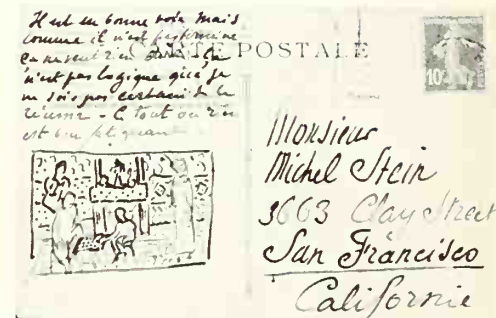 Il est en bonne voie mais
comme il n'est pas terminé
ça ne veut rien dire - ça
n'est pas logique que je
ne sois pas certain de la
réussir - C tout ou rien
est bien fatiguant
CARTE POSTALE
10
Monsieur
Michel Stein
3663 Clay Street
San Francisco
Californie